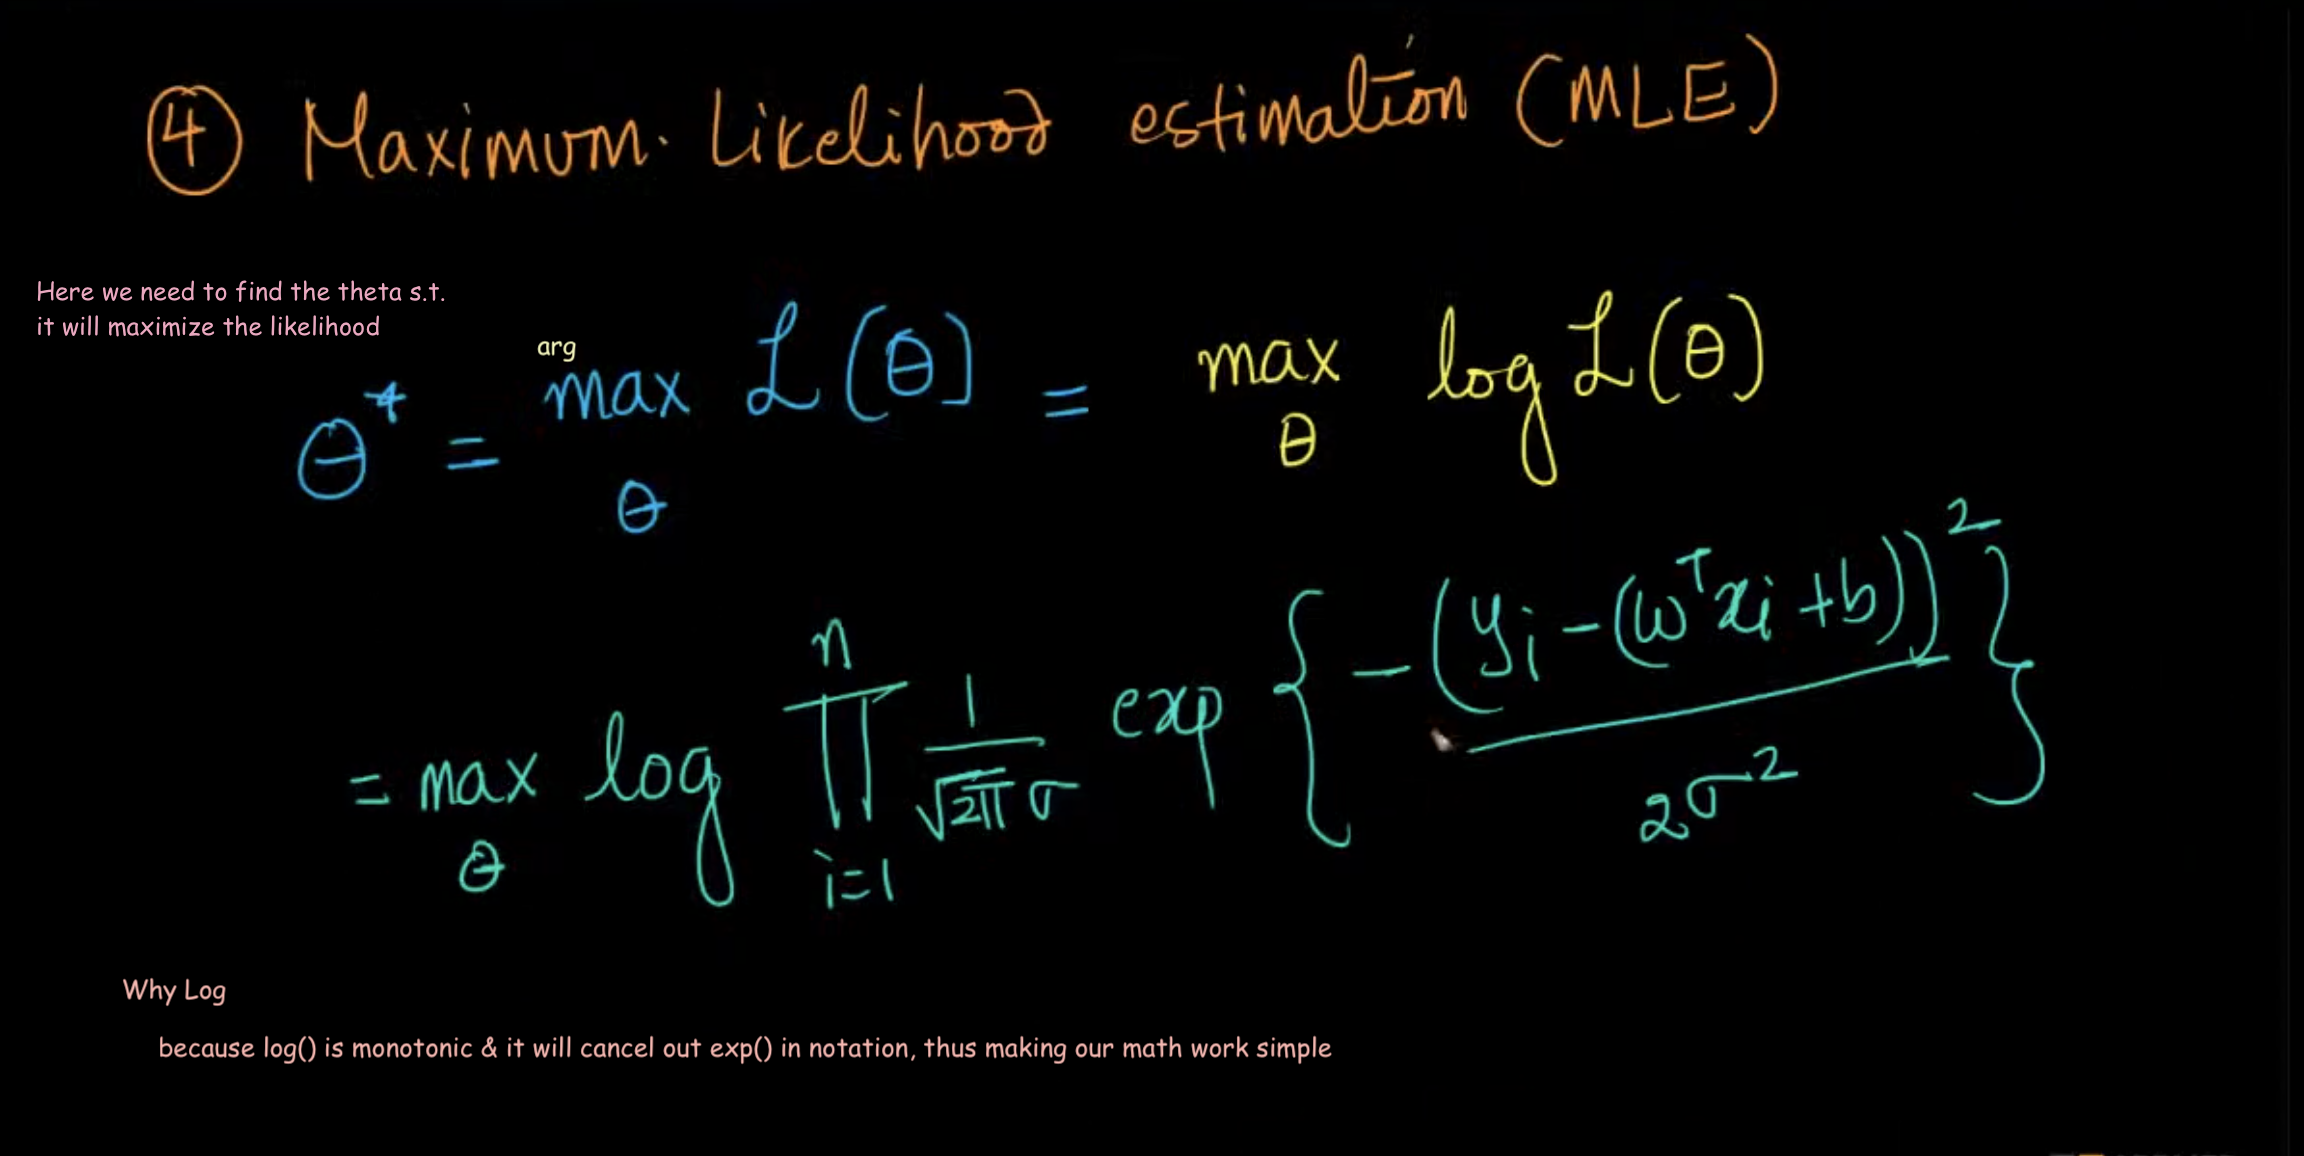 ④ Maximum. Likelihood estimation (MLE)
Here we need to find the theta s.t.
it will maximize the likelihood
arg
θ* = max L(θ) = max log L(θ)
θ θ
= max log ∏ 1/√2π σ exp { -(yi - (wᵀxi + b))² / 2σ² }
θ i=1 n
Why Log
because log() is monotonic & it will cancel out exp() in notation, thus making our math work simple